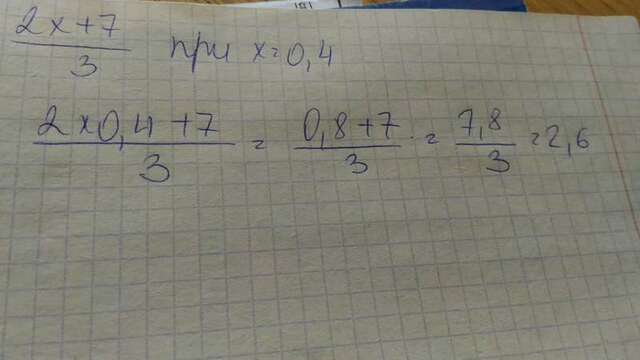 2x+7/3 при x=0,4
2×0,4+7/3 = 0,8+7/3 = 7,8/3 = 2,6